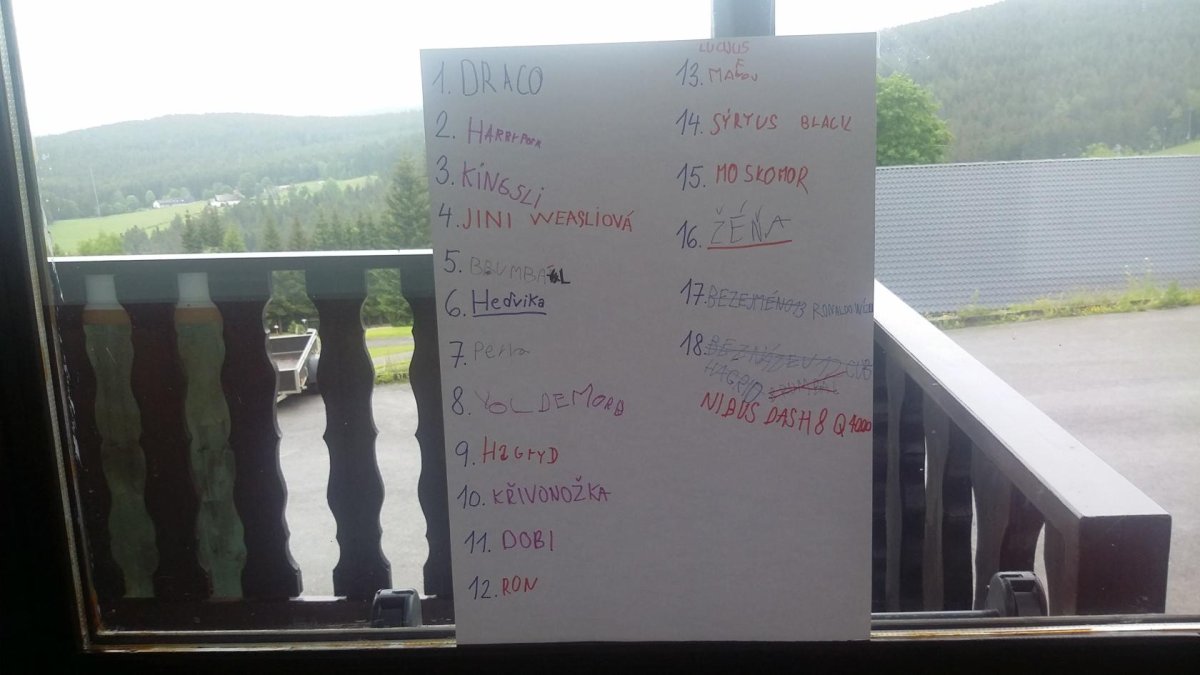 1. DRACO
2. HARRY
3. KÍNGSLI
4. JINI WEASLIOVÁ
5. BRUMBÁL
6. Heďvika
7. Perla
8. VOLDEMORD
9. HAGRYD
10. KŘIVONOŽKA
11. DOBI
12. RON
LUCIUS
13. MALFOU
14. SÝRYUS BLACK
15. MOSKOMOR
16. ŽÉŇA
17. BEZEJMÉNO13 RONALDO
18. BEZNÁZEV12
HAGRID
NIBUS DASH 8 Q4000